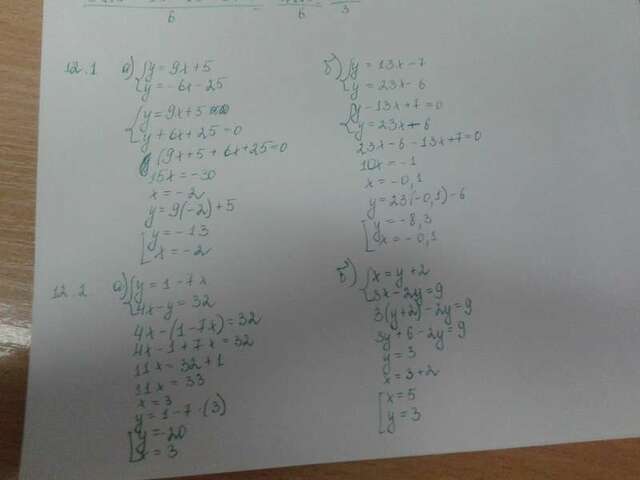 6 6 3
12.1 а) { y = 9x + 5
y = -6x - 25
{ y = 9x + 5
y + 6x + 25 = 0
(9x + 5 + 6x + 25 = 0
15x = -30
x = -2
y = 9(-2) + 5
[ y = -13
x = -2
б) { y = 13x - 7
y = 23x - 6
{ y - 13x + 7 = 0
y = 23x - 6
23x - 6 - 13x + 7 = 0
10x = -1
x = -0,1
y = 23(-0,1) - 6
[ y = -8,3
x = -0,1
12.2 а) { y = 1 - 7x
4x - y = 32
4x - (1 - 7x) = 32
4x - 1 + 7x = 32
11x = 32 + 1
11x = 33
x = 3
y = 1 - 7 · (3)
[ y = -20
x = 3
б) { x = y + 2
3x - 2y = 9
3(y + 2) - 2y = 9
3y + 6 - 2y = 9
y = 3
x = 3 + 2
[ x = 5
y = 3